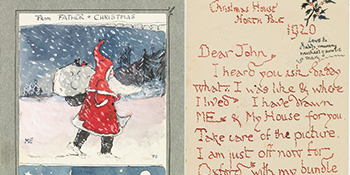 FROM FATHER CHRISTMAS
ME
Christmas House
NORTH POLE
1920
Love to
daddy, mummy
michael & auntie
Dear John
I heard you ask daddy
what I was like & where
I lived I have drawn
ME & My House for you.
Take care of the picture.
I am just off now for
Oxford with my bundle